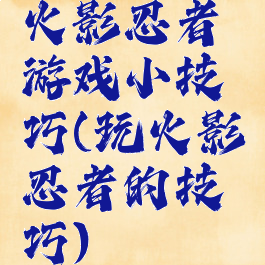 火影忍者
游戏小技
巧(玩火影
忍者的技
巧)